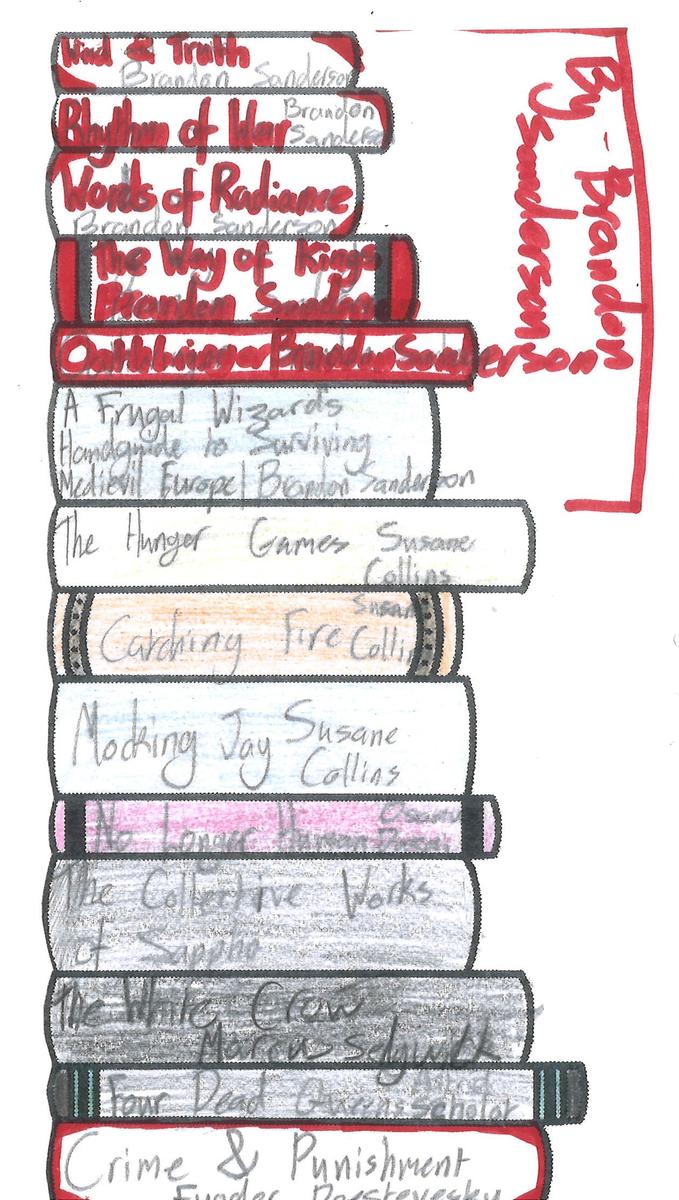 Wind & Truth
Brandon Sanderson
Rhythm of War
Brandon
Sanderson
Words of Radiance
Brandon Sanderson
The Way of Kings
Brandon Sanderson
Oathbringer Brandon Sanderson
By - Brandon
Sanderson
A Frugal Wizards
Handguide to Surviving
Medievil Europe| Brandon Sanderson
The Hunger Games Susane
Collins
Catching Fire Susan
Collin
Mocking Jay Susane
Collins
No Longer Human Osamu
The Collective Works
of Sappho
The White Crow
Marcus Sedgwick
Four Dead Queens Astrid
Scholat
Crime & Punishment
Fyodor Doestevesky